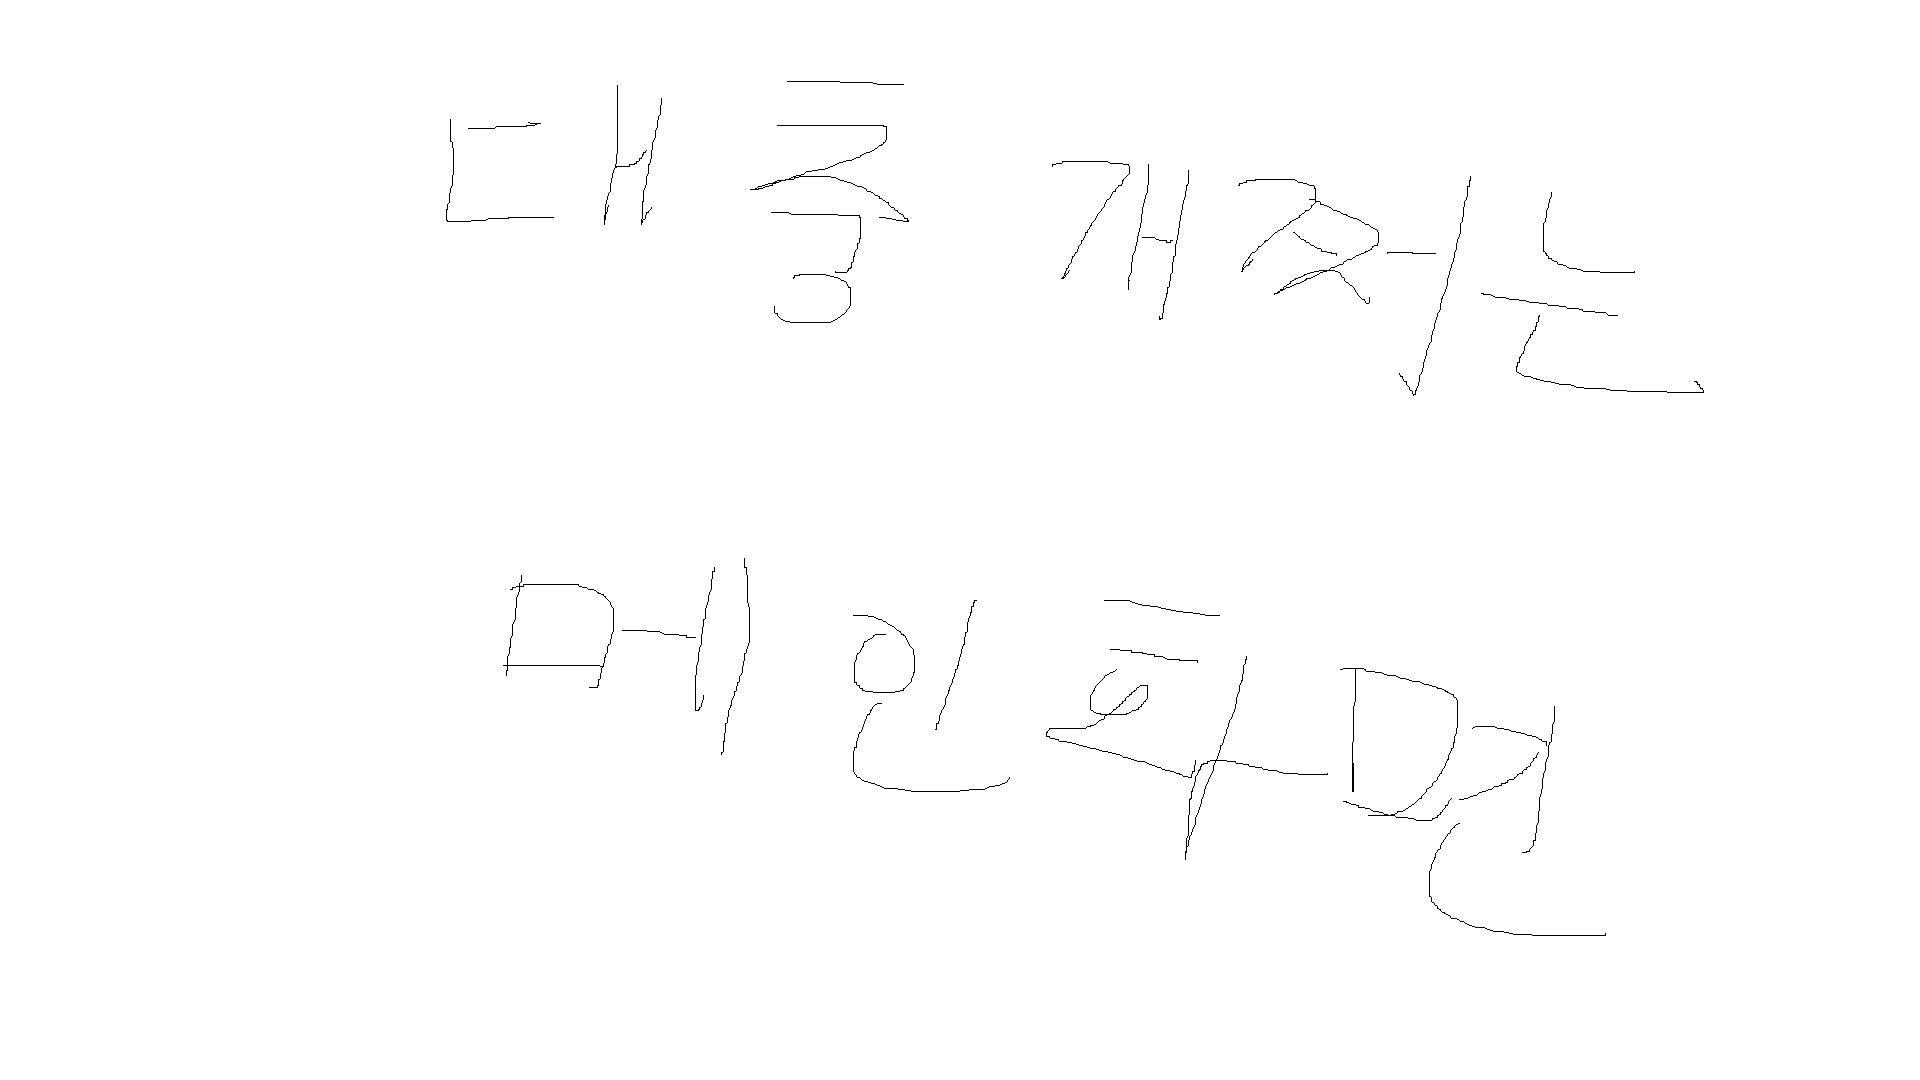 대충 개쩌는
메인화면